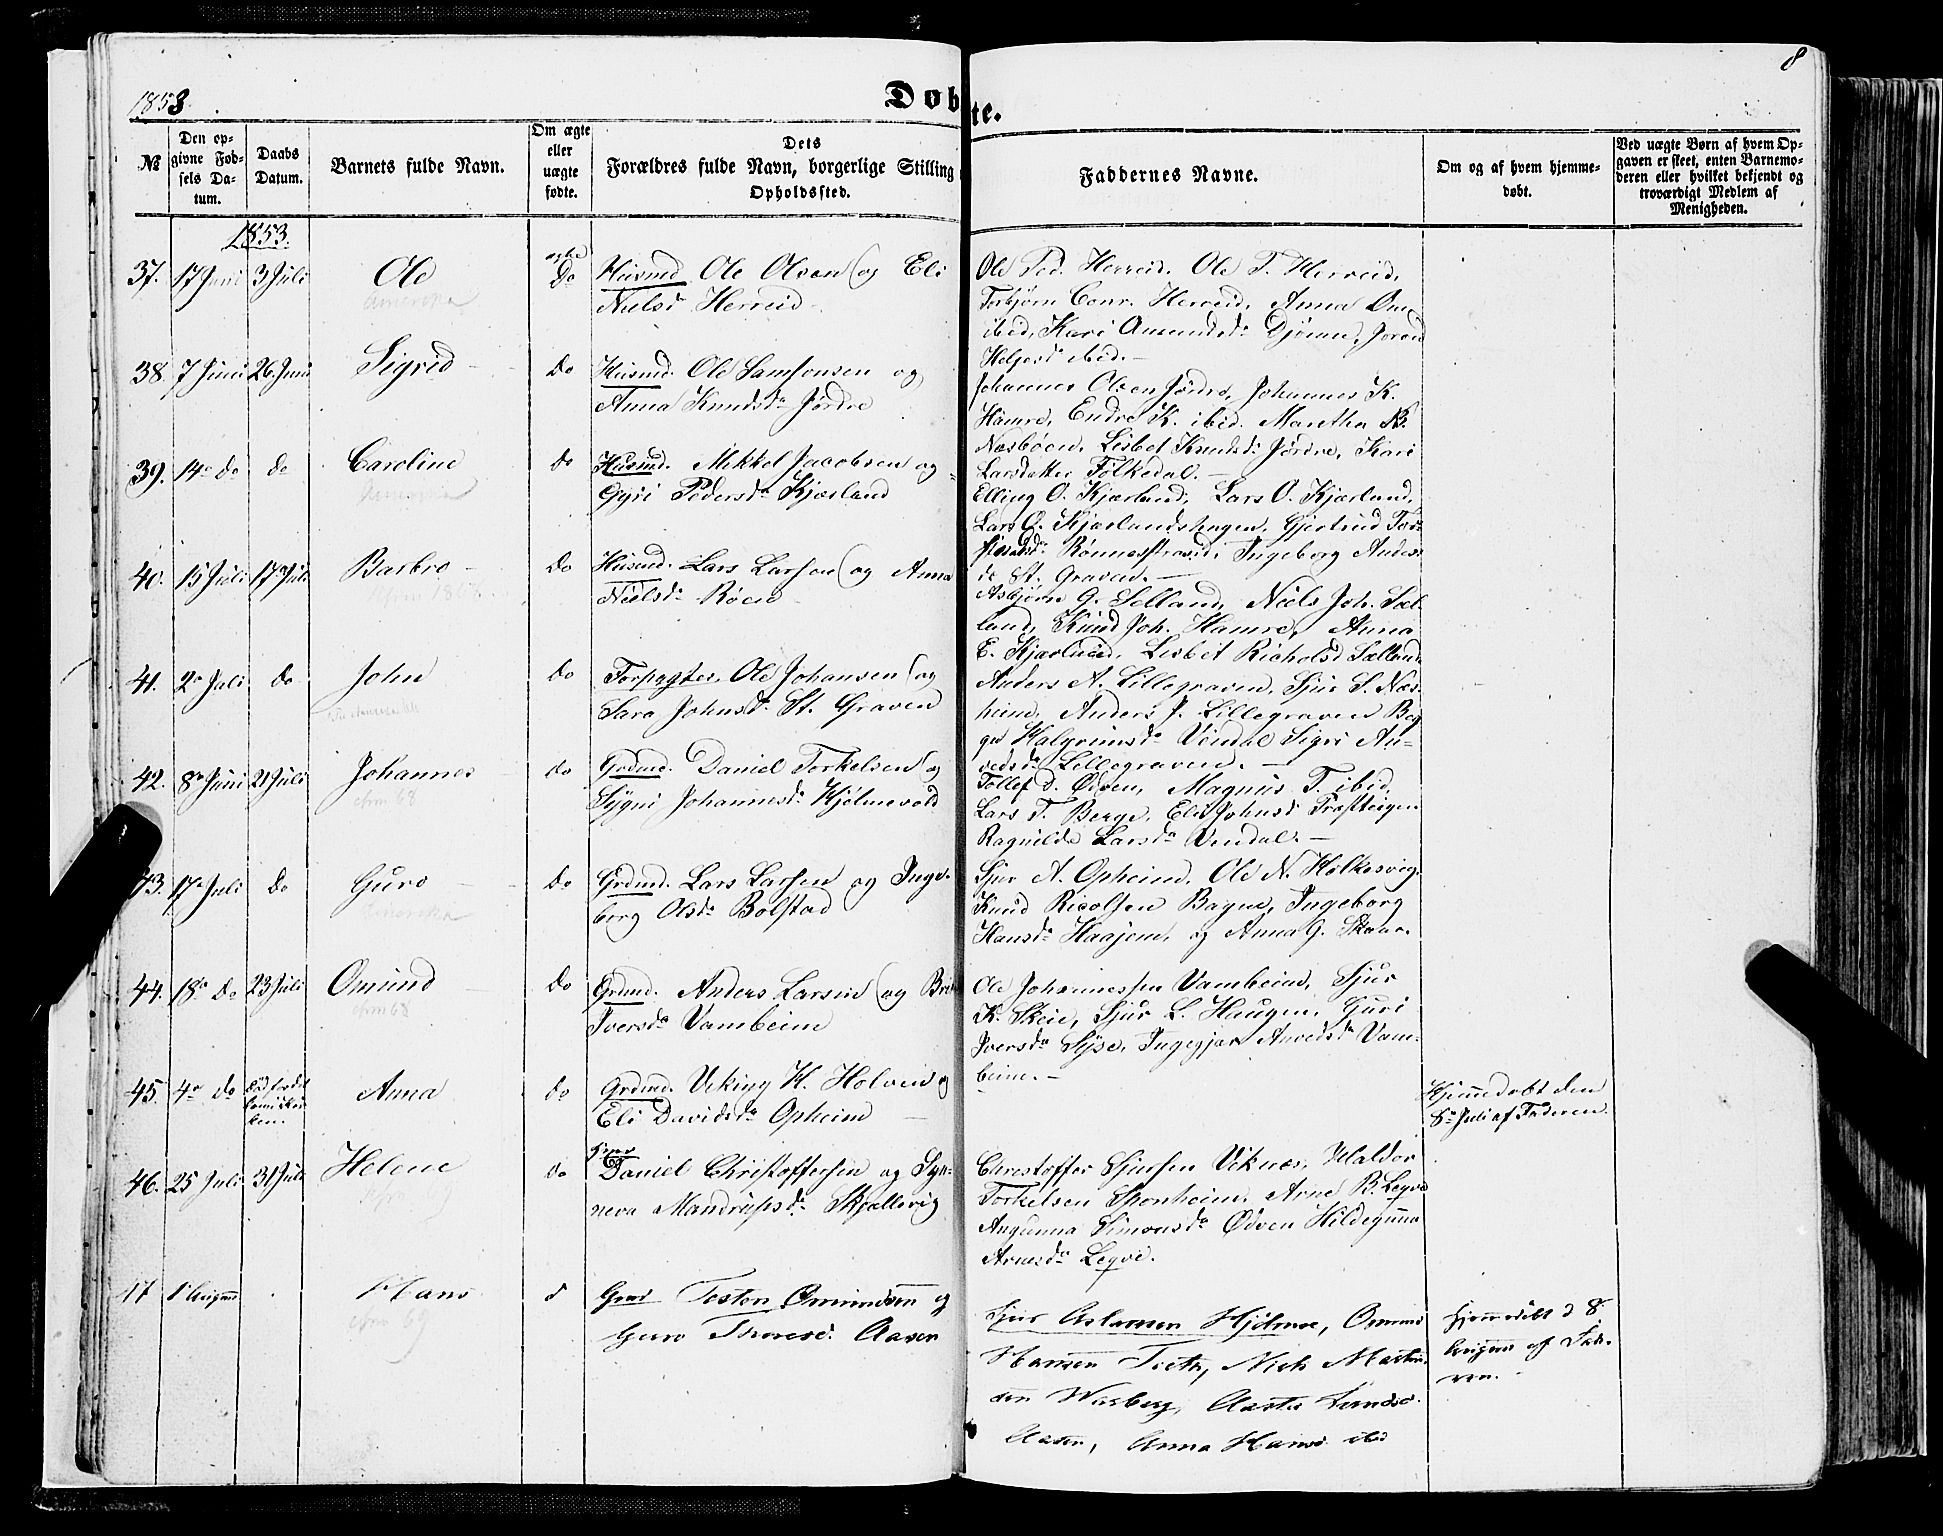 8
1853.
Døbte.
№
Den op-
givne Fød-
sels Da-
tum.
Daabs
Datum.
Barnets fulde Navn.
Om ægte
eller
uægte
fødte.
Dets
Forældres fulde Navn, borgerlige Stilling
Opholdssted.
Faddernes Navne.
Om og af hvem hjemme-
døbt.
Ved uægte Børn af hvem Op-
gaven er skeet, enten Barnemo-
deren eller hvilket bekjendt og
troværdigt Medlem af
Menigheden.
1853.
37. 17 Juni 3 Juli Ole ægte Do Husmd. Ole Olsen og Eli
Amerika
Nielsdr Herreid
Ole Ped. Herreid. Ole T. Herreid,
Torbjørn Conr. Herreid, Anna Om.
ibid, Kari Amundsdr Djønne, Joren
Helgesdr ibid.
38. 7 Juni 26 Juni Sigrid Do Husmd. Ole Samsonsen og
Anna Knudsdr Jørdre
Johannes Olsen Jørdre, Johannes K.
Hamre, Endre K. ibid. Maretha B.
Næsbøen, Lisbet Knudsdr Jørdre, Kari
Larsdatter Folkedal.
39. 14 do do Caroline do Husmd. Mikkel Jacobsen og
Amerika
Gyri Pedersdr Kjærland
Elling O. Kjærland, Lars O. Kjærland,
Lars O. Kjærlandshagen, Gjertrud Tor-
Rønnestrand, Ingeborg Anders-
dr St. Graven.
40. 15 Juli 17 Juli Barbro do Husmd. Lars Larsen og Anna
Nielsdr Røen
Asbjørn G. Selland, Niels Joh. Sæl-
land, Knud Joh. Hamre, Anna
E. Kjærland, Lisbet Richolsd Sælland
41. 2 Juli do John do Forpagter. Ole Johansen og
Sara Johnsd. St. Graven
Anders A. Lillegraven, Sjur S. Næs-
heim, Anders J. Lillegraven
Halgrimsdr Vendal Sigri An-
vedsdr Lillegraven.
42. 8 Juni 21 Juli Johannes do Grdmd. Daniel Torkelsen og
cfrm 68
Sygni Johannesdr Hjølmevold
Tollef D. Ødven, Magnus T. ibid,
Lars T. Berge, Eli Johnsd
Ragnilda Larsdr Vendal.
43. 17 Juli do Guro do Grdmd. Lars Larsen og Inge-
Amerika
borg Olsdr Bolstad
Sjur A. Opheim, Ole N. Holkesvig,
Knud Ricolfsen Bagne, Ingeborg
Hansdr Haajem, og Anna G. Skaar.
44. 18 do 23 Juli Omund do Grdmd. Anders Larsen og Brita
cfrm 68
Iversdr Vambeim
Ole Johannessen Vambeim, Sjur
K. Skeie, Sjur L. Haugen, Guri
Iversdr Syse, Ingegjær Anvedsdr Vam-
beim.
45. 4 do Anna do Grdmd. Viking H. Holven og
Eli Davidsdr Opheim
Hjemmedøbt den
8 Juli af Faderen
46. 25 Juli 31 Juli Helene do Daniel Christoffersen og Syn-
neva Mandrupsdr Skjællevig
Christoffer Sjursen Viknæs, Haldor
Torkelsen Sponheim, Arne B. Legve
Angunna Simonsdr Ødven Hildegunna
Arnesdr Legve.
47 1 August Hans d Grmd Tosten Omundsen og
cfrm 69
Guro Thoresd. Aasen
Sjur Aslamsen Hjølmoe, Omund
Hansen Tveito, Niels Mortin-
sen Wasberg, Aasta
Aasen, Anna Hansd ibid
hjemmedøbt d 8
August af Fade-
ren.